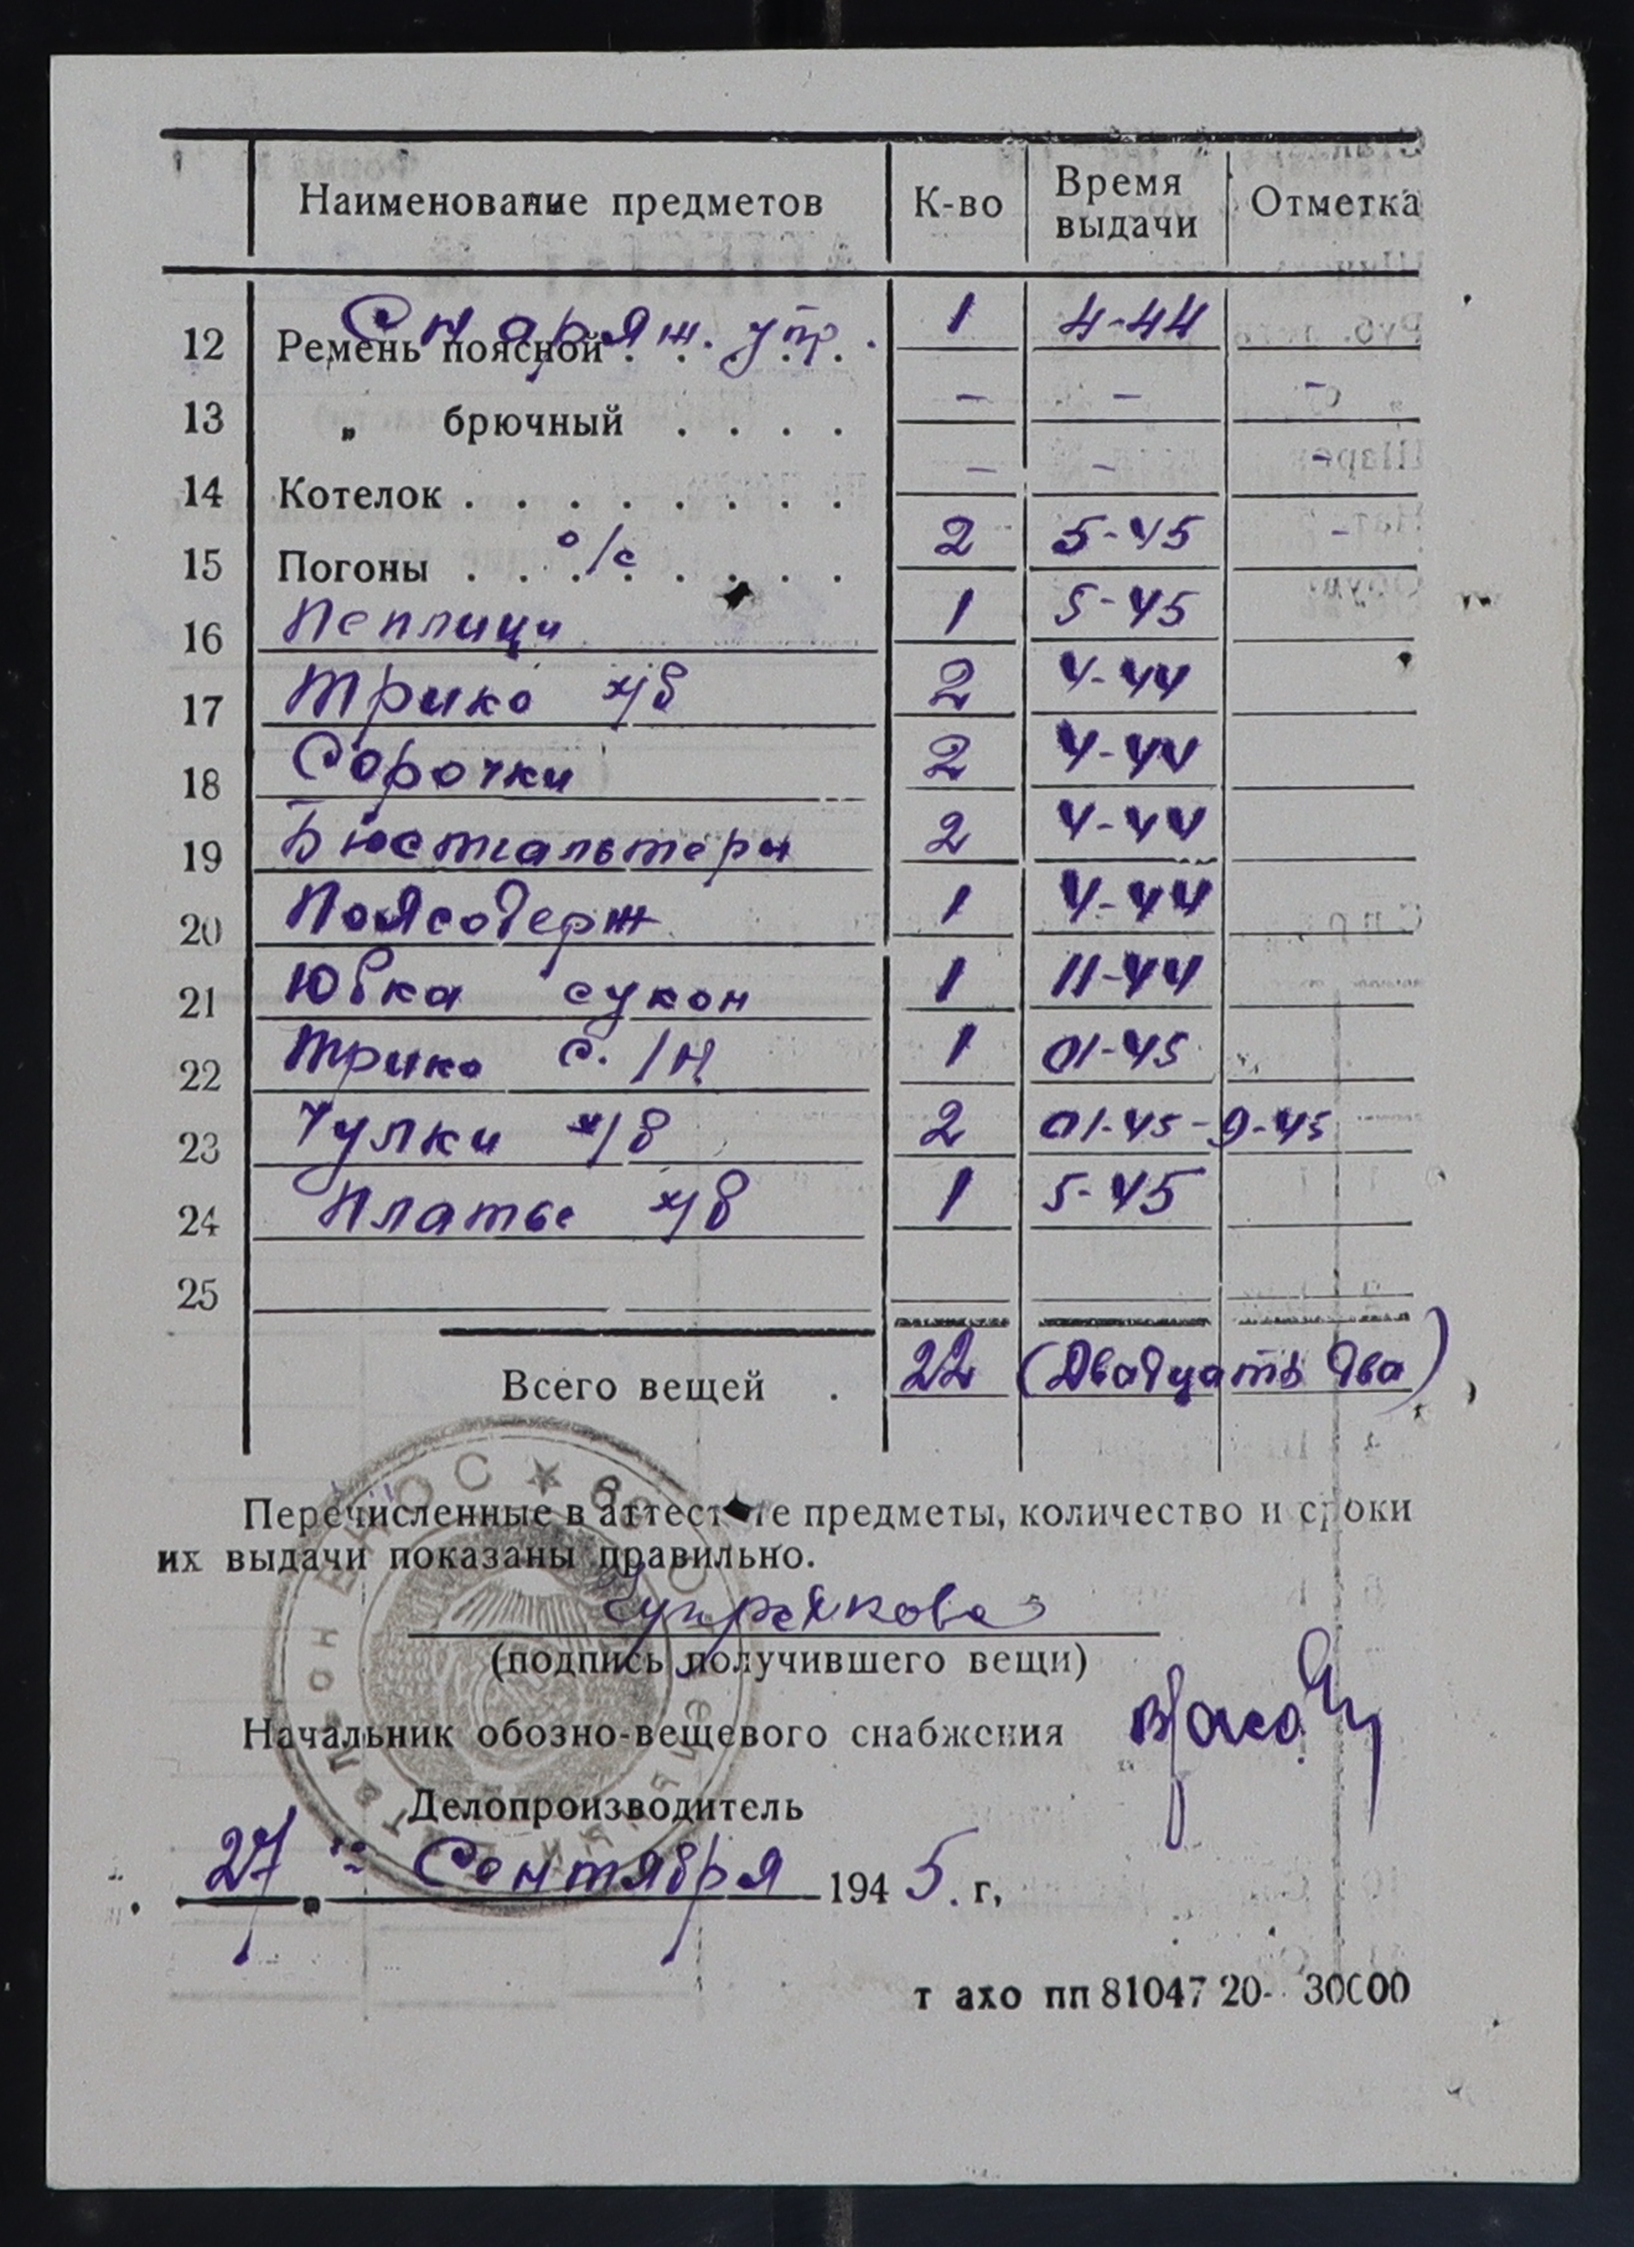 Наименование предметов К-во Время выдачи Отметка
Снаряж. упр. 1 4-44
12 Ремень поясной . . . . .
13 „ брючный . . . . - - -
14 Котелок . . . . . . . . - - -
15 Погоны о/с . . . . . . . 2 5-45 -
16 Петлици 1 5-45
17 Трико х/б 2 4-44
18 Сорочки 2 4-44
19 Бюстгальтеры 2 4-44
20 Поясодерж 1 4-44
21 Юбка сукон 1 11-44
22 Трико с./н 1 01-45
23 Чулки х/б 2 01-45 - 9-45
24 Платье х/б 1 5-45
25
Всего вещей . 22 (Двадцать два)
Перечисленные в аттестате предметы, количество и сроки
их выдачи показаны правильно.
(подпись получившего вещи)
Начальник обозно-вещевого снабжения
Делопроизводитель
27 " Сентября 1945. г,
т ахо пп 81047 20- 30000